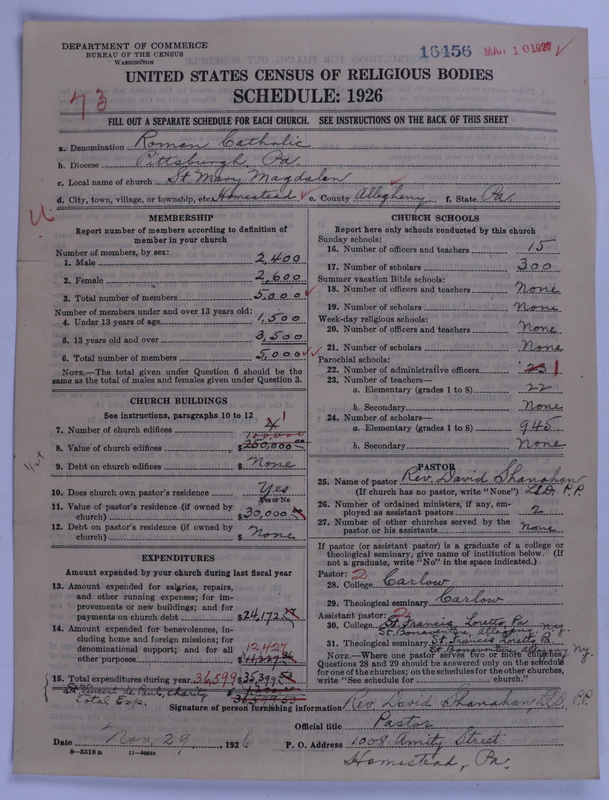 DEPARTMENT OF COMMERCE
BUREAU OF THE CENSUS
WASHINGTON
16456 MAR 10 1927
UNITED STATES CENSUS OF RELIGIOUS BODIES
SCHEDULE: 1926
73
FILL OUT A SEPARATE SCHEDULE FOR EACH CHURCH. SEE INSTRUCTIONS ON THE BACK OF THIS SHEET
a. Denomination Roman Catholic
b. Diocese Pittsburgh, Pa.
c. Local name of church St. Mary Magdalen
d. City, town, village, or township, etc. Homestead e. County Allegheny f. State Pa.
MEMBERSHIP
Report number of members according to definition of member in your church
Number of members, by sex:
1. Male 2,400
2. Female 2,600
3. Total number of members 5,000
Number of members under and over 13 years old:
4. Under 13 years of age 1,500
5. 13 years old and over 3,500
6. Total number of members 5,000
NOTE.—The total given under Question 6 should be
same as the total of males and females given under Question 3.
CHURCH BUILDINGS
See instructions, paragraphs 10 to 12
7. Number of church edifices 1
8. Value of church edifices $250,000.00
9. Debt on church edifices $ None
10. Does church own pastor's residence Yes
Yes or No
11. Value of pastor's residence (if owned by
church) $30,000
12. Debt on pastor's residence (if owned by
church) $ None
EXPENDITURES
Amount expended by your church during last fiscal year
13. Amount expended for salaries, repairs,
and other running expenses; for im-
provements or new buildings; and for
payments on church debt $24,172
14. Amount expended for benevolences, in-
cluding home and foreign missions; for
denominational support; and for all
other purposes 12,427
15. Total expenditures during year 36,599
St Vincent de Paul, charity
Total Exp. 36599
CHURCH SCHOOLS
Report here only schools conducted by this church
Sunday schools:
16. Number of officers and teachers 15
17. Number of scholars 300
Summer vacation Bible schools:
18. Number of officers and teachers None
19. Number of scholars None
Week-day religious schools:
20. Number of officers and teachers None
21. Number of scholars None
Parochial schools:
22. Number of administrative officers 23 1
23. Number of teachers—
a. Elementary (grades 1 to 8) 22
b. Secondary None
24. Number of scholars—
a. Elementary (grades 1 to 8) 945
b. Secondary None
PASTOR
25. Name of pastor Rev. David Shanahan
(If church has no pastor, write "None") LL.D. P.P.
26. Number of ordained ministers, if any, em-
ployed as assistant pastors 2
27. Number of other churches served by the
pastor or his assistants None
If pastor (or assistant pastor) is a graduate of a college or
theological seminary, give name of institution below. (If
not a graduate, write "No" in the space indicated.)
Pastor: 2
28. College Carlow
29. Theological seminary Carlow
Assistant pastor: 2
30. College St. Francis Loretto, Pa
St. Bonaventure, Allegany NY
31. Theological seminary St. Francis Loretto Pa.
St. Bonaventure Allegany NY.
NOTE.—Where one pastor serves two or more churches,
Questions 28 and 29 should be answered only on the schedule
for one of the churches; on the schedules for the other churches,
write "See schedule for church."
Signature of person furnishing information Rev. David Shanahan, LL.D., P.P.
Official title Pastor
Date Nov. 29, 1926 P. O. Address 1008 Amity Street
8—5518a 11—9024a Homestead, Pa.